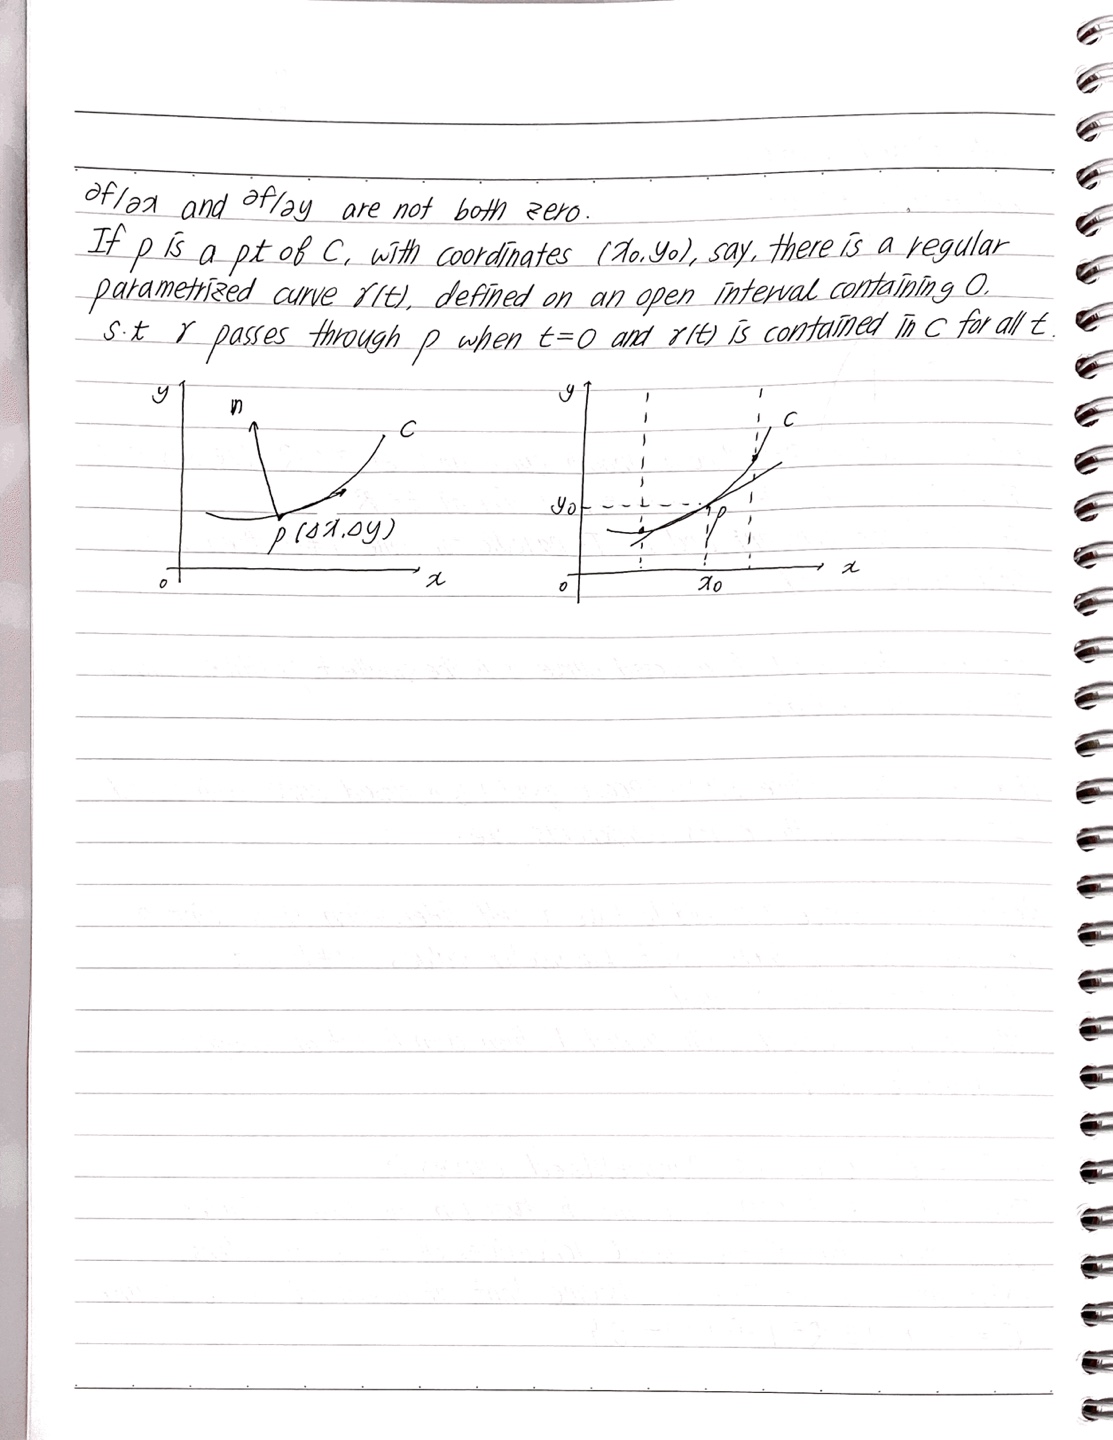 ∂f/∂x and ∂f/∂y are not both zero.
If p is a pt of C, with coordinates (x0,y0), say, there is a regular
parametrized curve γ(t), defined on an open interval containing 0.
s.t γ passes through p when t=0 and γ(t) is contained in C for all t.
y
n
C
p(Δx,Δy)
0
x
y
C
y0
p
0
x0
x